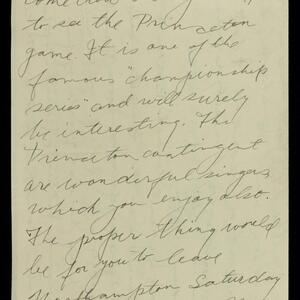 to see the Princeton
game. It is one of the
famous "championship
series" and will surely
be interesting. The
Princeton contingent
are wonderful singers,
which you enjoy also.
The proper thing would
be for you to leave
Northampton Saturday